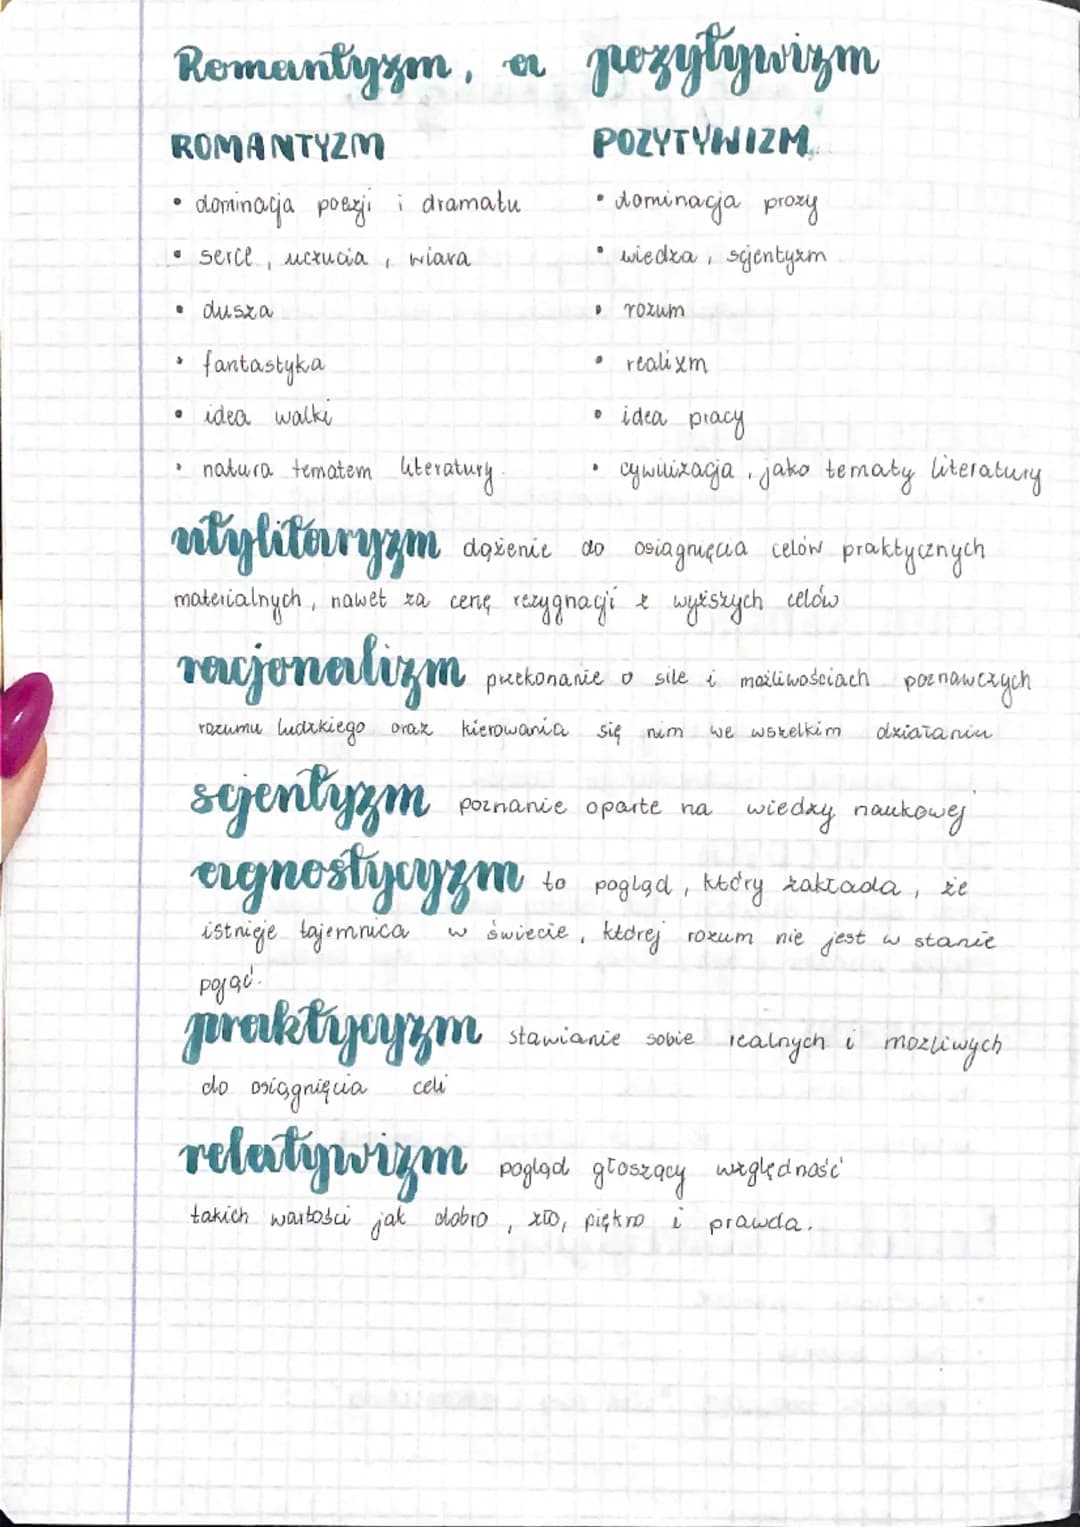 Romantyzm, a pozytywizm
ROMANTYZM
POZYTYWIZM
• dominacja poezji i dramatu
• serce, uczucia, wiara
• dusza
• fantastyka
• idea walki
• natura tematem literatury.
• dominacja prozy
• wiedza, scjentyzm
• rozum
• realizm
• idea pracy
• cywilizacja, jako tematy literatury
utylitaryzm dążenie do osiągnięcia celów praktycznych
materialnych, nawet za cenę rezygnacji z wyższych celów
racjonalizm przekonanie o sile i możliwościach poznawczych
rozumu ludzkiego oraz kierowania się nim we wszelkim działaniu
scjentyzm poznanie oparte na wiedzy naukowej
agnostycyzm to pogląd, który zakłada, że
istnieje tajemnica w świecie, której rozum nie jest w stanie
pojąć.
praktycyzm stawianie sobie realnych i możliwych
do osiągnięcia celi
relatywizm pogląd głoszący względność
takich wartości jak dobro, zło, piękno i prawda.